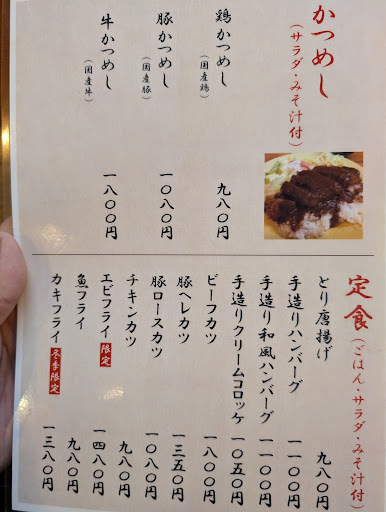 かつめし
（サラダ・みそ汁付）
鶏かつめし
（国産鶏）
九八〇円
豚かつめし
（国産豚）
一〇八〇円
牛かつめし
（国産牛）
一八〇〇円
定食（ごはん・サラダ・みそ汁付）
とり唐揚げ 九八〇円
手造りハンバーグ 一一〇〇円
手造り和風ハンバーグ 一一〇〇円
手造りクリームコロッケ 一〇五〇円
ビーフカツ 一八〇〇円
豚ヘレカツ 一三五〇円
豚ロースカツ 一〇八〇円
チキンカツ 九八〇円
エビフライ 限定 一四八〇円
魚フライ 九八〇円
カキフライ 冬季限定 一三八〇円